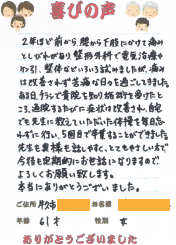 喜びの声
2年ほど前から、腰から下肢にかけて痛み
としびれがあり整形外科で電気治療や
けん引、整体などいろいろ試みましたが、痛み
は改善されず苦痛な日々を過ごしていました。
ある日、チラシで貴院を知り施術を受けたと
ころ、通院するたびに症状は改善され、自宅
でも先生に教えていただいた体操を毎日忘
れずに行い、5回目で卒業することができました。
先生も奥様も話しやすく、とてもやさしい方で
今後も定期的にお世話になりますので
よろしくお願い致します。
本当にありがとうございました。
ご住所
市
お名前
年齢 61才 性別 女
ありがとうございました